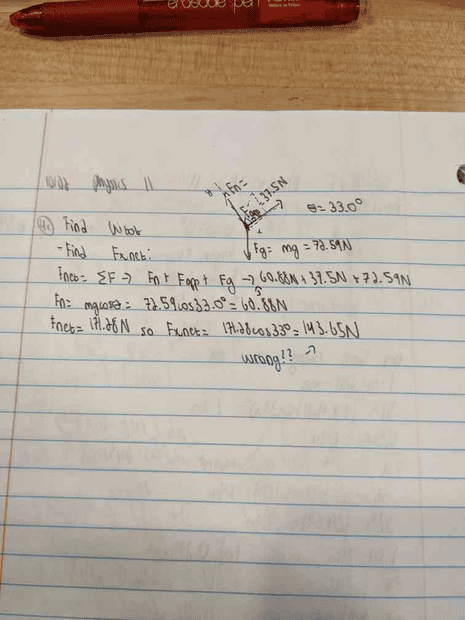 erasable pen
10/02 Physics 11
Fn=
Fapp=37.5N
θ=33.0°
Fg = mg = 72.59N
Find Wtot
-Find Fxnet:
Fnet= ΣF → Fn + Fapp + Fg → 60.88N + 37.5N + 72.59N
Fn= mgcosθ= 72.59cos33.0°= 60.88N
Fnet= 171.28N so Fxnet= 171.28cos33°= 143.65N
wrong?? →